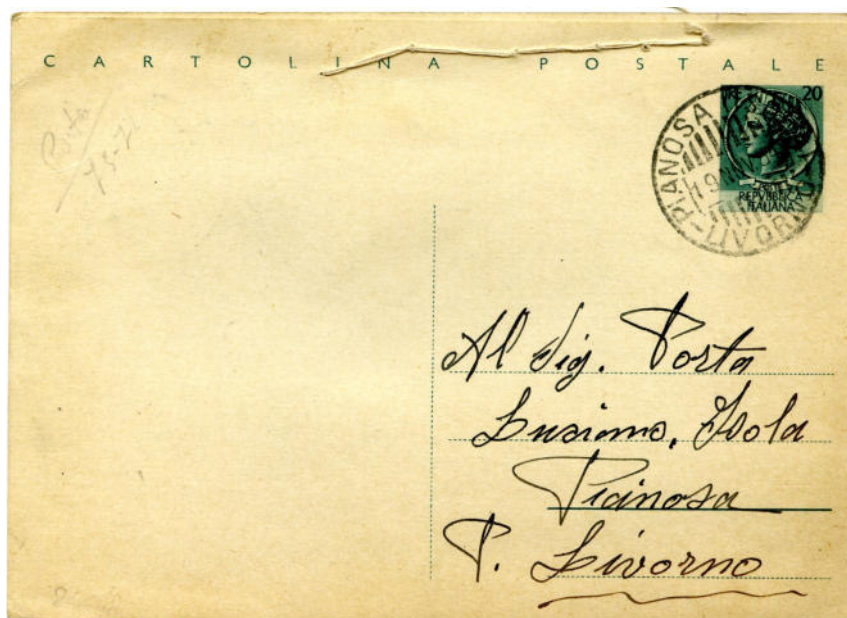 CARTOLINA POSTALE
20
REPVBBLICA
ITALIANA
PIANOSA
LIVORNO
Porta
Al Sig. Porta
Lusiano, Isola
Pianosa
P. Livorno